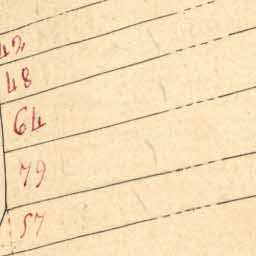 42
48
64
79
57